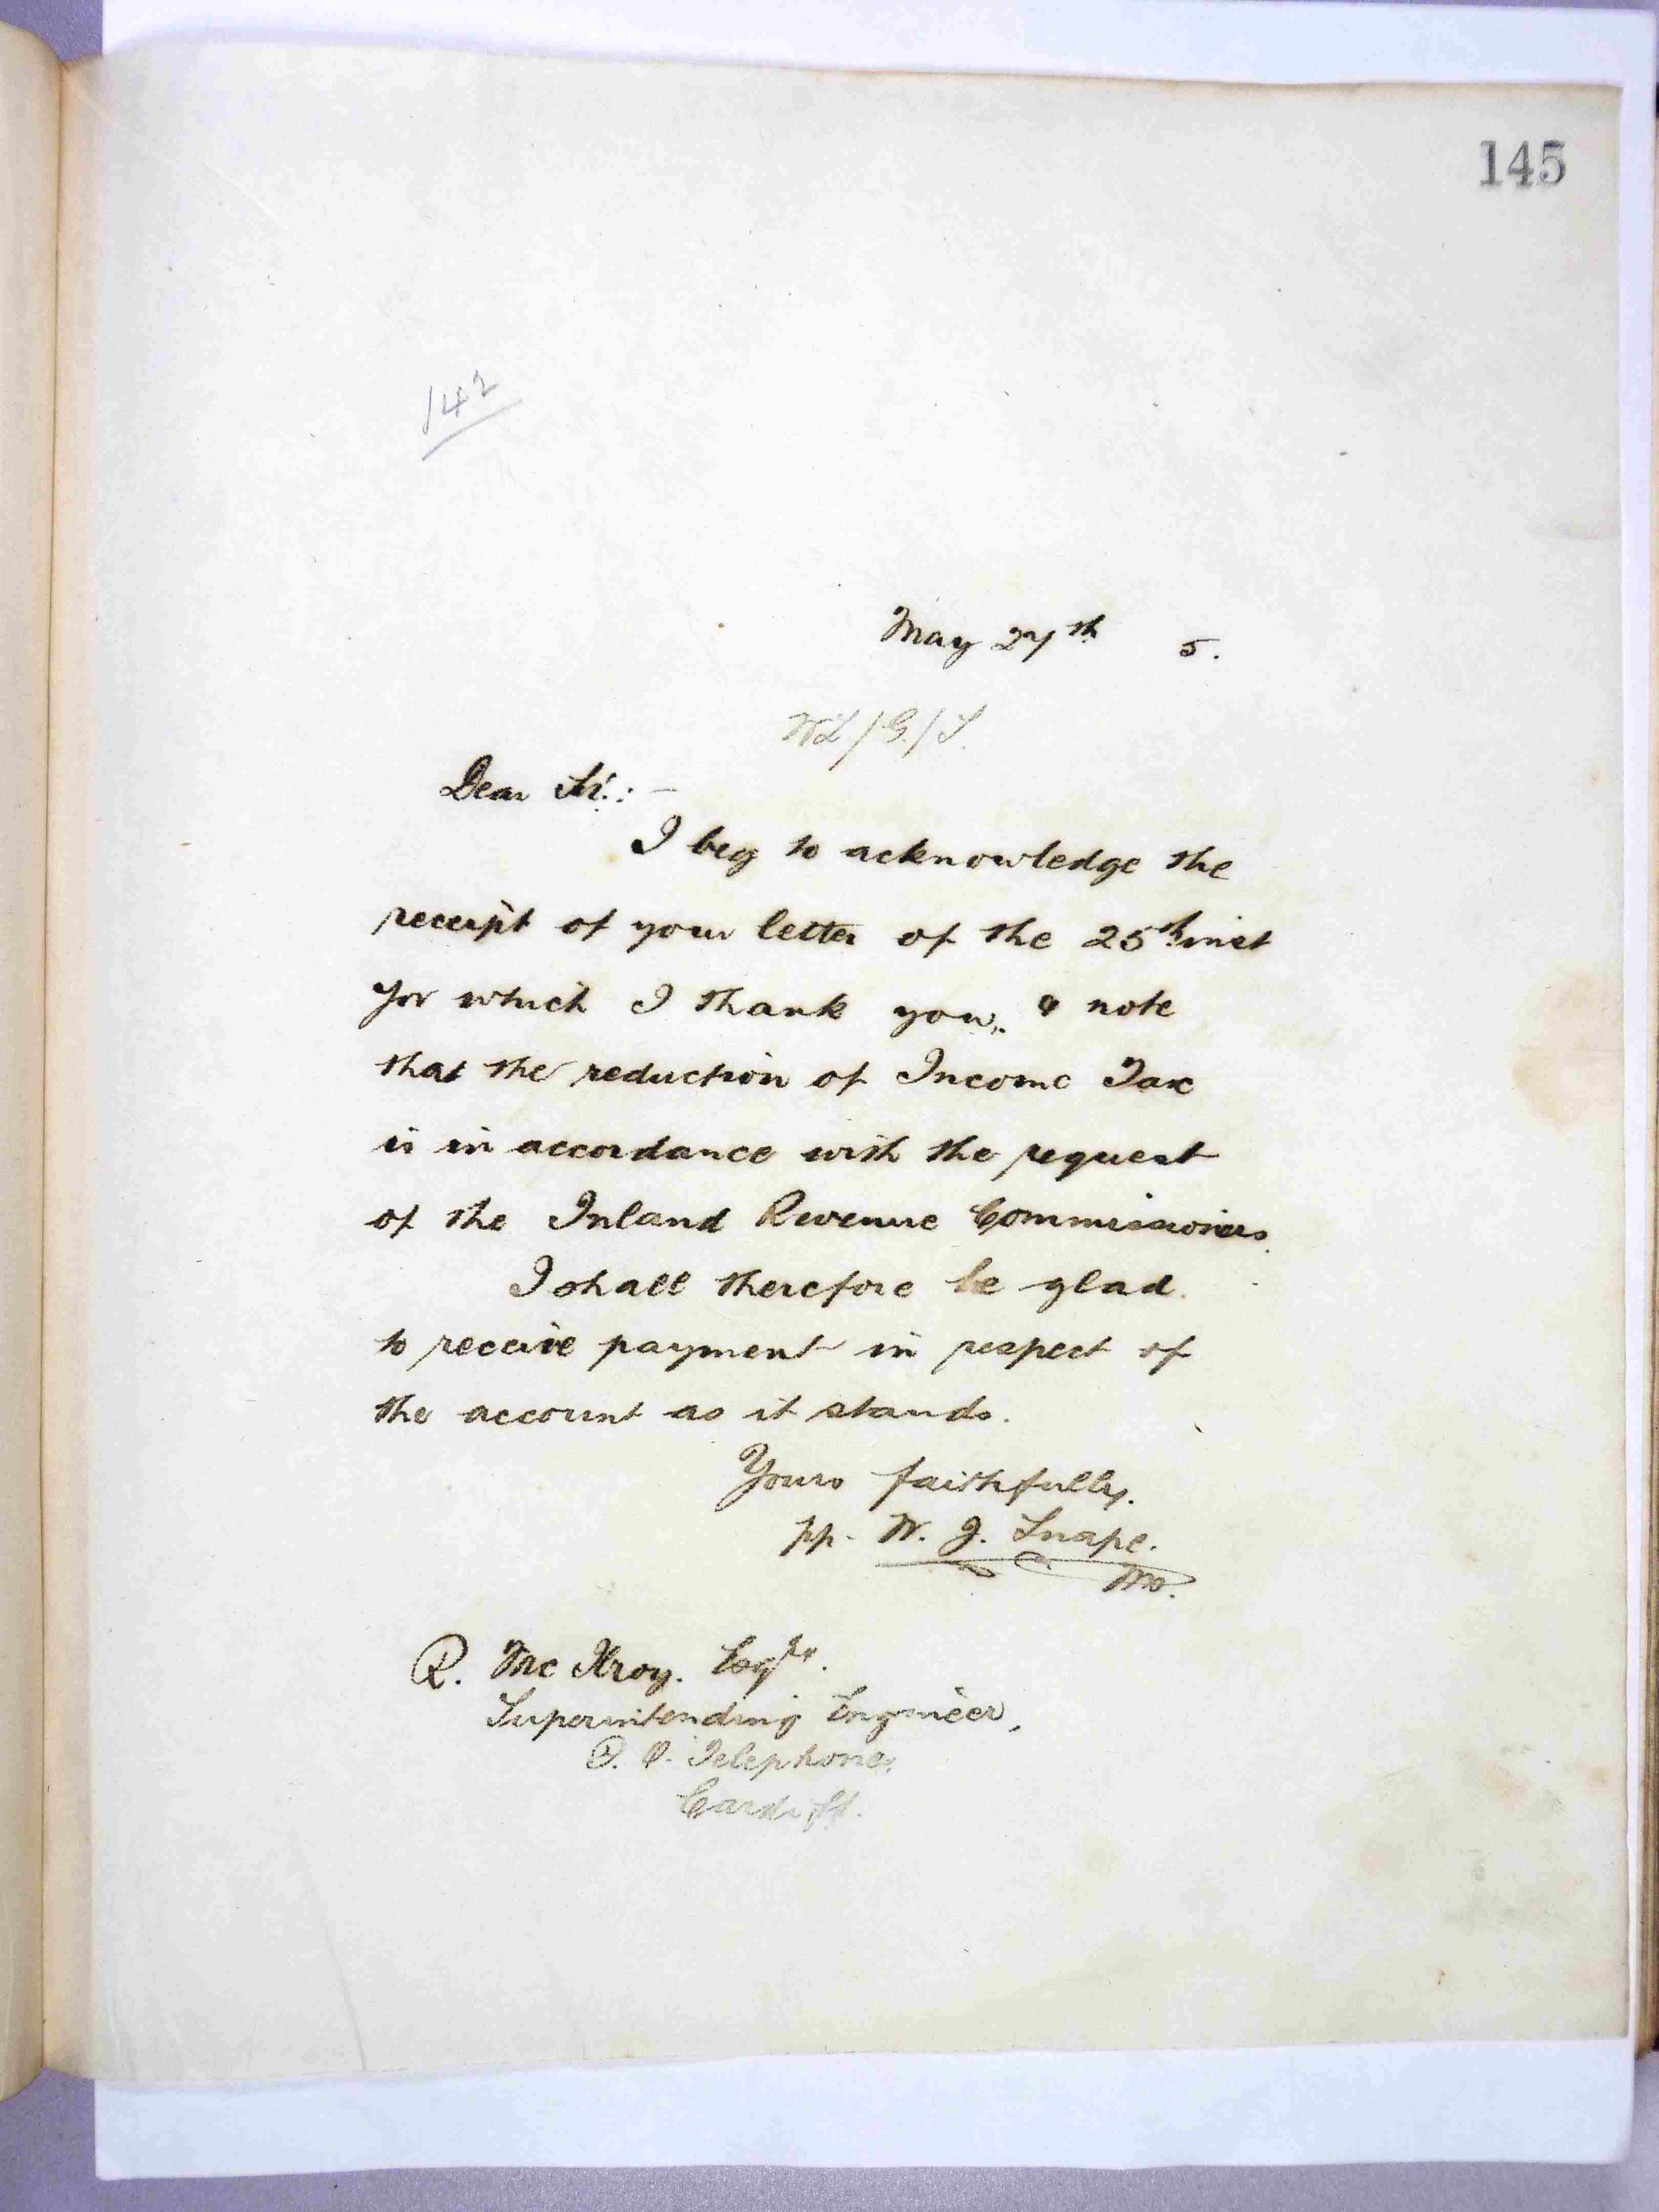 145
142
May 27th 5.
WL/G/S.
Dear Sir.: -
I beg to acknowledge the
receipt of your letter of the 25th inst
for which I thank you, & note
that the reduction of Income Tax
is in accordance with the request
of the Inland Revenue Commissioners.
I shall therefore be glad.
to receive payment in respect of
the account as it stands.
Yours faithfully.
pp. W. J. Snape.
R. Mc Ilroy. Esqre.
Superintending Engineer,
P. O. Telephones,
Cardiff.